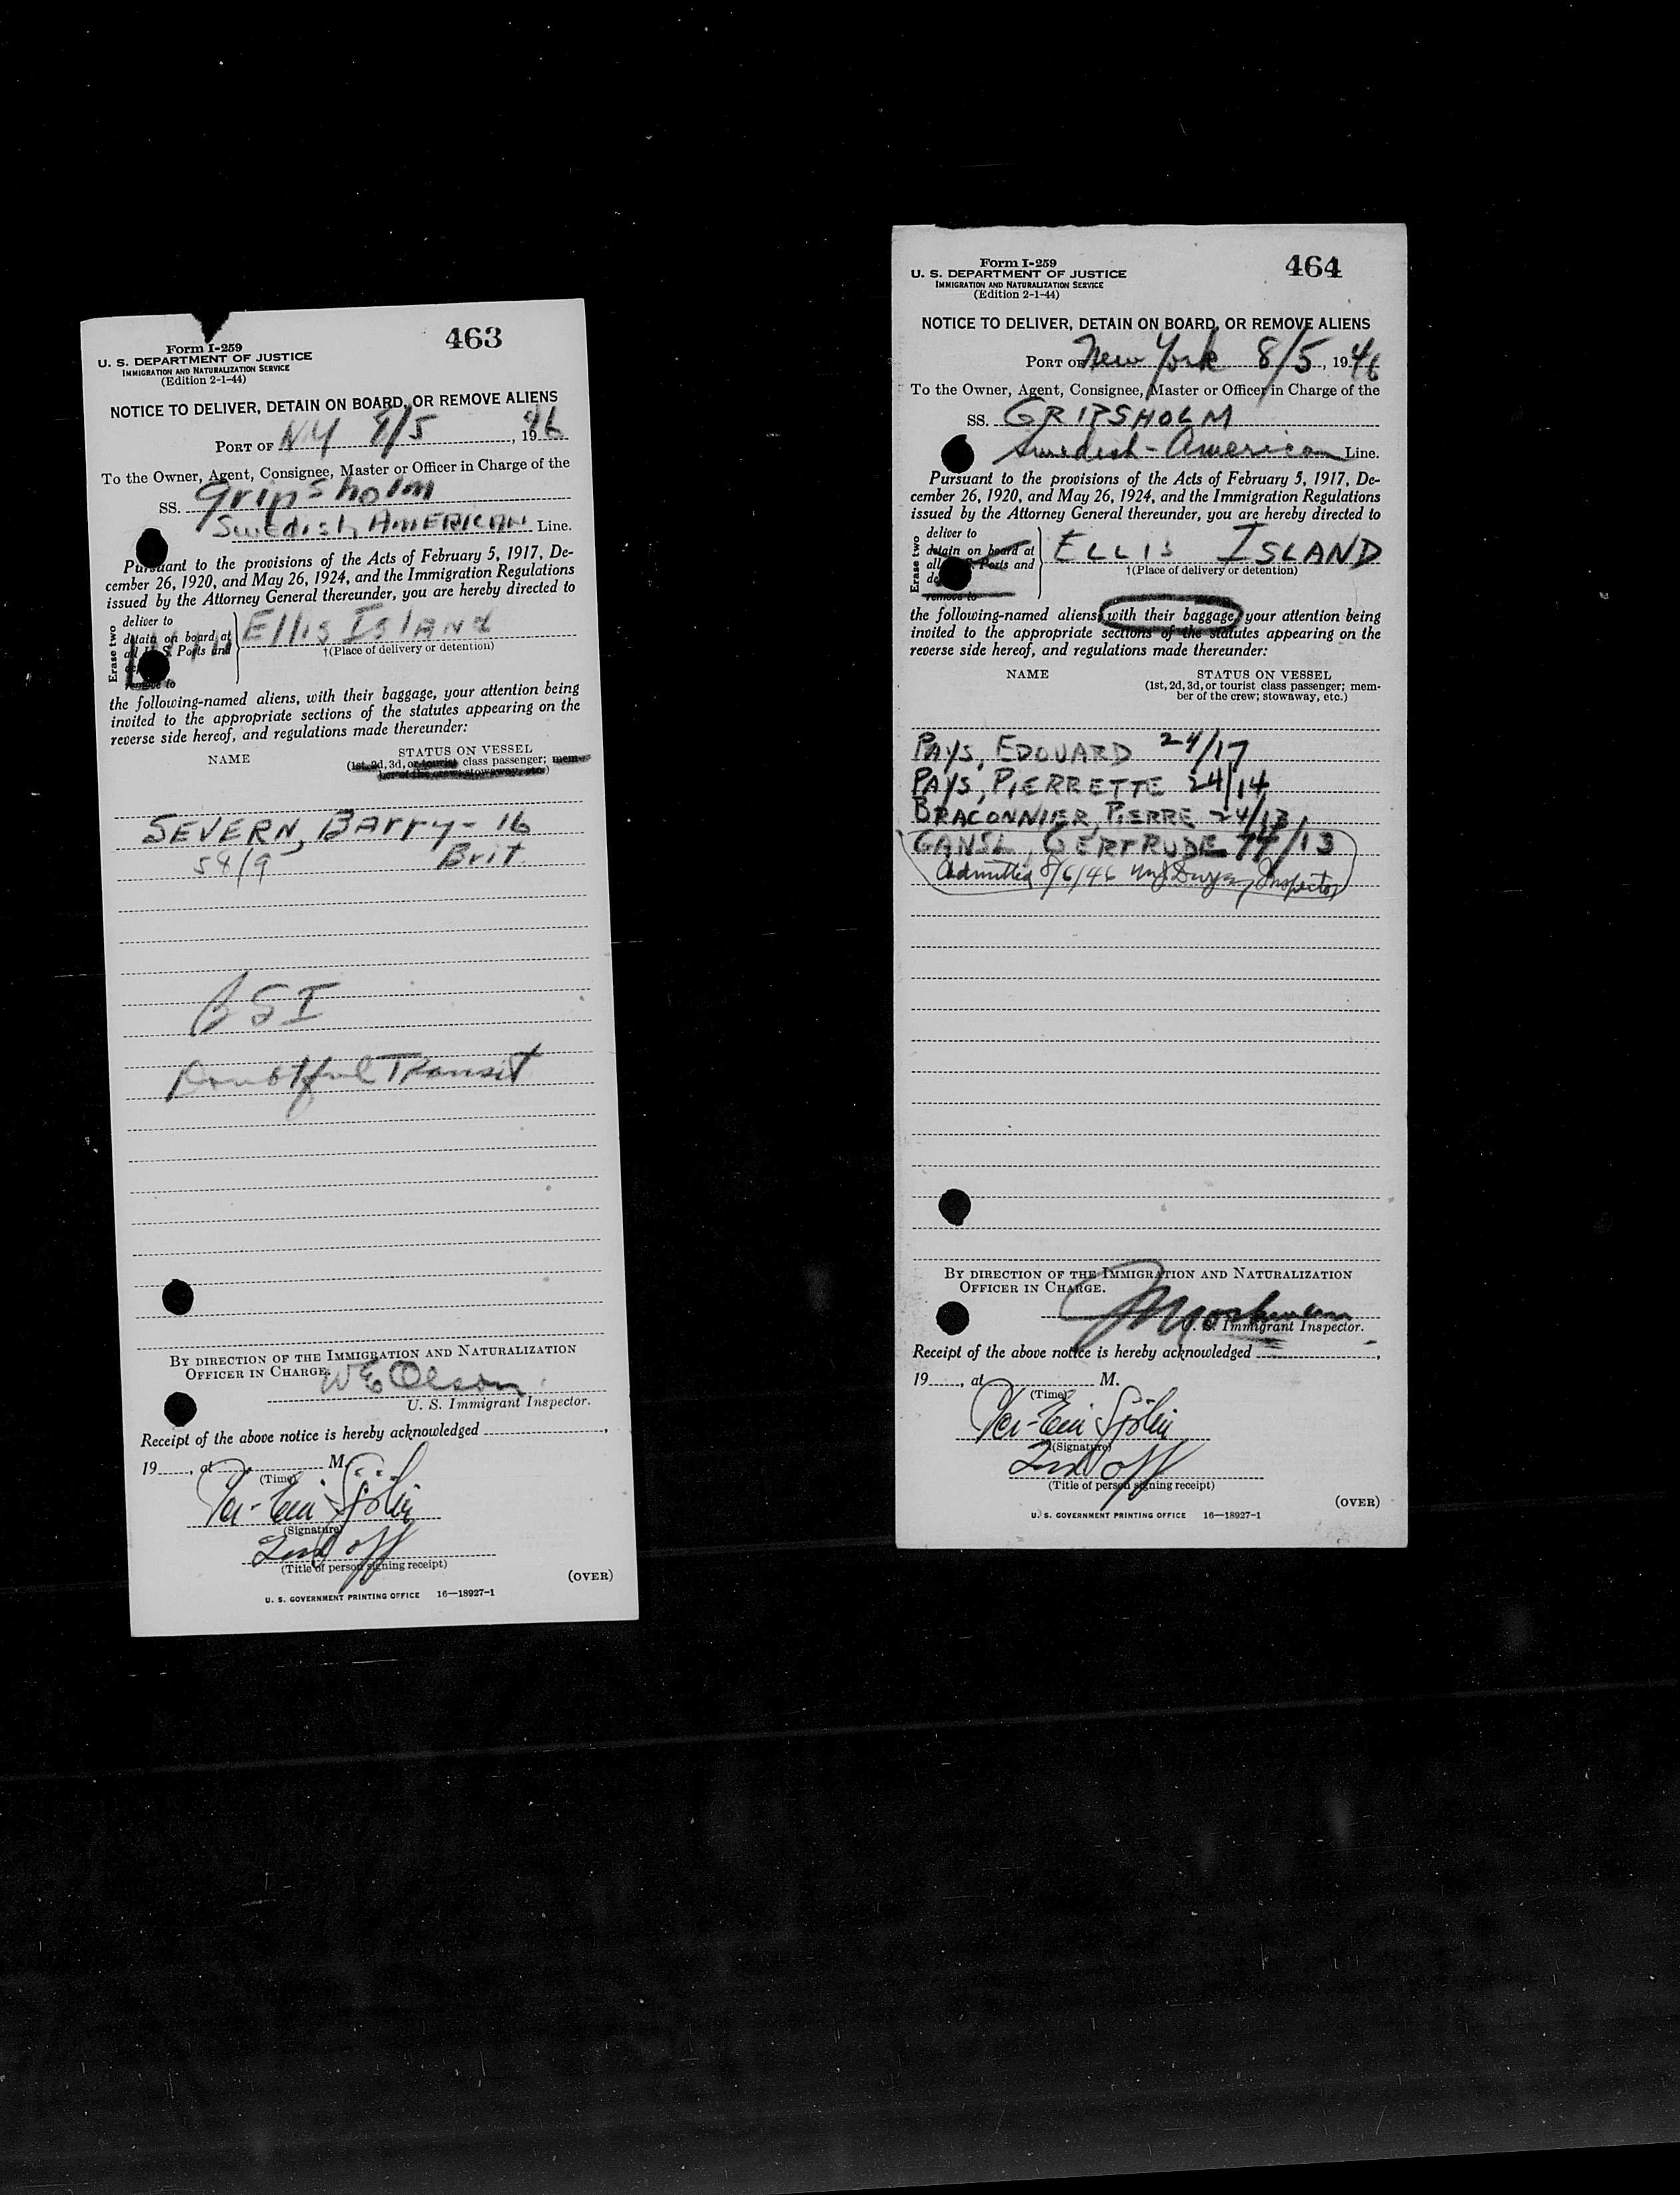 463
Form I-259
U. S. DEPARTMENT OF JUSTICE
IMMIGRATION AND NATURALIZATION SERVICE
(Edition 2-1-44)
NOTICE TO DELIVER, DETAIN ON BOARD, OR REMOVE ALIENS
PORT OF NY 8/5, 1946
To the Owner, Agent, Consignee, Master or Officer in Charge of the
SS. Gripsholm
Swedish AMERICAN Line.
Pursuant to the provisions of the Acts of February 5, 1917, De-
cember 26, 1920, and May 26, 1924, and the Immigration Regulations
issued by the Attorney General thereunder, you are hereby directed to
Erase two
deliver to
detain on board at
all U. S. Ports and
remove to
Ellis Island
†(Place of delivery or detention)
the following-named aliens, with their baggage, your attention being
invited to the appropriate sections of the statutes appearing on the
reverse side hereof, and regulations made thereunder:
NAME STATUS ON VESSEL
(1st, 2d, 3d, or tourist class passenger; mem-
ber of the crew; stowaway, etc.)
SEVERN, Barry - 16
54/9 Brit.
BSI
Doubtful Transit
BY DIRECTION OF THE IMMIGRATION AND NATURALIZATION
OFFICER IN CHARGE.
W E Olson
U. S. Immigrant Inspector.
Receipt of the above notice is hereby acknowledged ,
19 , at M.
(Time)
(Signature)
2nd off
(Title of person signing receipt)
(OVER)
U. S. GOVERNMENT PRINTING OFFICE 16—18927-1
464
Form I-259
U. S. DEPARTMENT OF JUSTICE
IMMIGRATION AND NATURALIZATION SERVICE
(Edition 2-1-44)
NOTICE TO DELIVER, DETAIN ON BOARD, OR REMOVE ALIENS
PORT OF New York 8/5, 1946
To the Owner, Agent, Consignee, Master or Officer in Charge of the
SS. GRIPSHOLM
Swedish-American Line.
Pursuant to the provisions of the Acts of February 5, 1917, De-
cember 26, 1920, and May 26, 1924, and the Immigration Regulations
issued by the Attorney General thereunder, you are hereby directed to
Erase two
deliver to
detain on board at
all U. S. Ports and
remove to
ELLIS ISLAND
†(Place of delivery or detention)
the following-named aliens, with their baggage, your attention being
invited to the appropriate sections of the statutes appearing on the
reverse side hereof, and regulations made thereunder:
NAME STATUS ON VESSEL
(1st, 2d, 3d, or tourist class passenger; mem-
ber of the crew; stowaway, etc.)
PAYS, EDOUARD 24/17
PAYS, PIERRETTE 24/14
BRACONNIER, PIERRE 24/13
GANSL, GERTRUDE 74/13
Admitted 8/6/46 Inspector
BY DIRECTION OF THE IMMIGRATION AND NATURALIZATION
OFFICER IN CHARGE.
U. S. Immigrant Inspector.
Receipt of the above notice is hereby acknowledged ,
19 , at M.
(Time)
(Signature)
2nd off
(Title of person signing receipt)
(OVER)
U. S. GOVERNMENT PRINTING OFFICE 16—18927-1